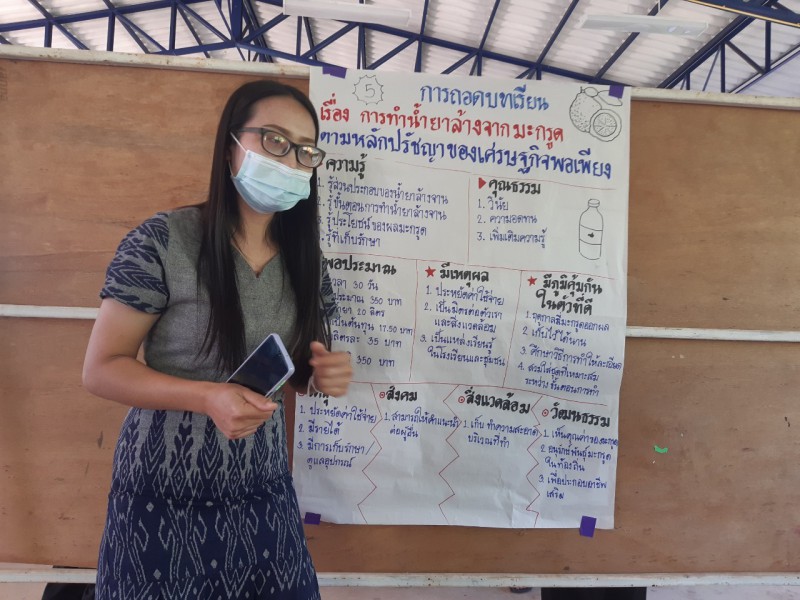 5
การถอดบทเรียน
เรื่อง การทำน้ำยาล้างจากมะกรูด
ตามหลักปรัชญาของเศรษฐกิจพอเพียง
ความรู้
1. รู้ส่วนประกอบของน้ำยาล้างจาน
2. รู้ขั้นตอนการทำน้ำยาล้างจาน
3. รู้ประโยชน์ของผลมะกรูด
รู้ที่เก็บรักษา
คุณธรรม
1. วินัย
2. ความอดทน
3. เพิ่มเติมความรู้
พอประมาณ
เวลา 30 วัน
ประมาณ 350 บาท
20 ลิตร
เป็นต้นทุน 17.50 บาท
ลิตรละ 35 บาท
350 บาท
มีเหตุผล
1. ประหยัดค่าใช้จ่าย
2. เป็นมิตรต่อตัวเรา
และสิ่งแวดล้อม
3. เป็นแหล่งเรียนรู้
ในโรงเรียนและชุมชน
มีภูมิคุ้มกัน
ในตัวที่ดี
1. ฤดูกาลที่มะกรูดออกผล
2. เก็บไว้ได้นาน
3. ศึกษาวิธีการทำให้ละเอียด
4. สวมใส่ชุดที่เหมาะสม
ระหว่างขั้นตอนการทำ
1. ประหยัดค่าใช้จ่าย
2. มีรายได้
3. มีการเก็บรักษา/
ดูแลอุปกรณ์
สังคม
1. สามารถให้คำแนะนำ
ต่อผู้อื่น
สิ่งแวดล้อม
1. เก็บ ทำความสะอาด
บริเวณที่ทำ
วัฒนธรรม
1. เห็นคุณค่าของมะกรูด
2. อนุรักษ์พันธุ์มะกรูด
ในท้องถิ่น
3. เพื่อประกอบอาชีพ
เสริม